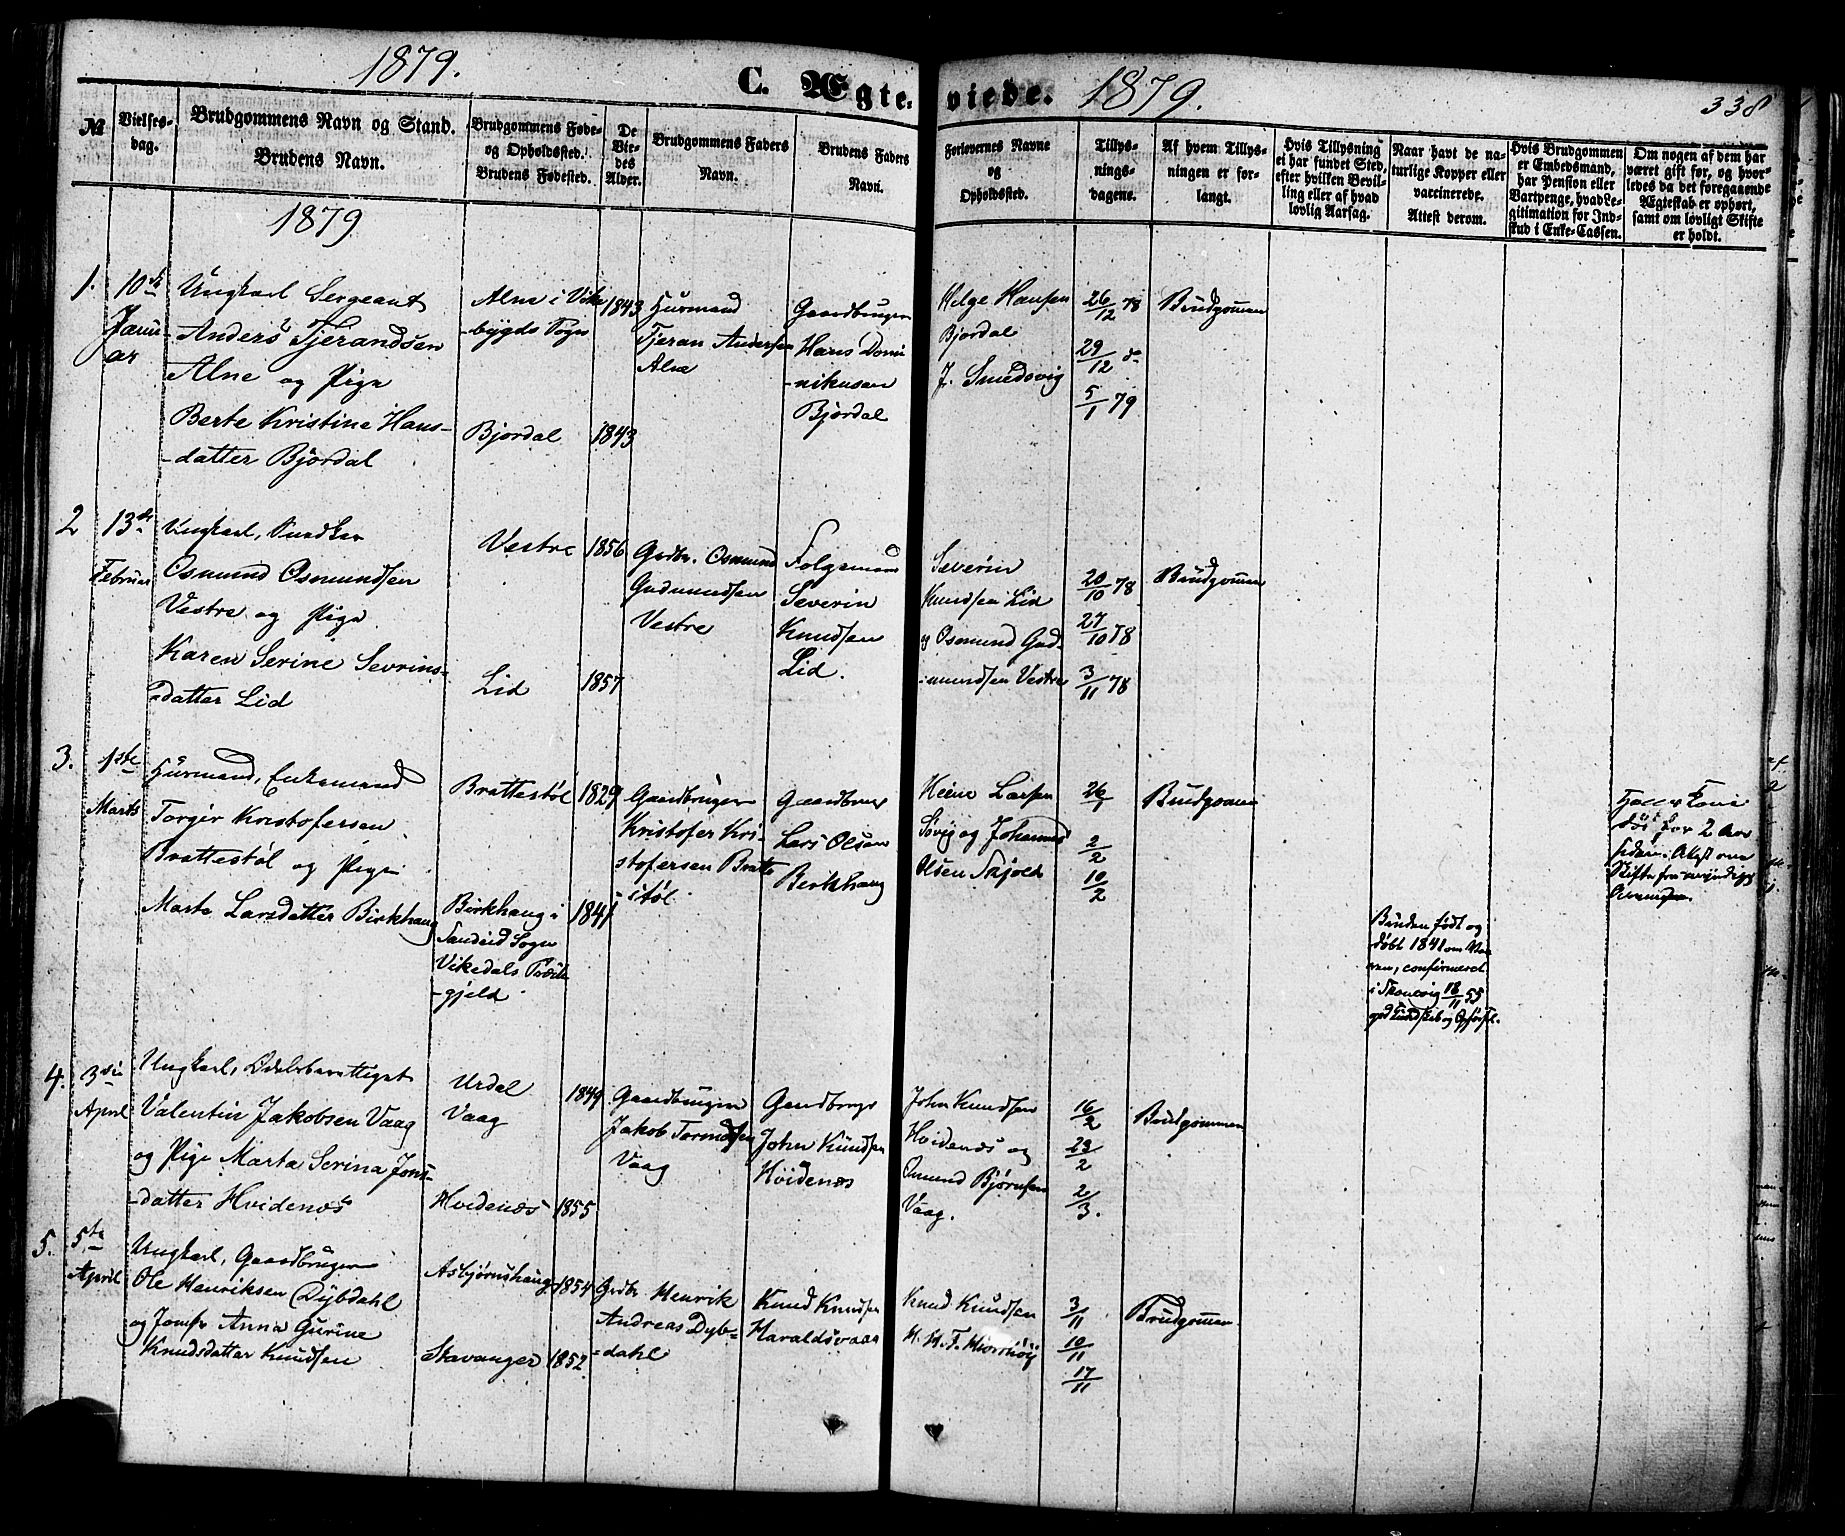 1879.
C. Ægteviede.
1879.
338
№
Vielsesdag.
Brudgommens Navn og Stand.
Brudens Navn.
Brudgommens Føde-
og Opholdssted.
Brudens Fødested.
De
Vie-
des
Alder.
Brudgommens Faders
Navn.
Brudens Faders
Navn.
Forlovernes Navne
og
Opholdssted.
Tillys-
nings-
dagene.
Af hvem Tillys-
ningen er for-
langt.
Hvis Tillysning
ei har fundet Sted,
efter hvilken Bevil-
ling eller af hvad
lovlig Aarsag.
Naar havt de na-
turlige Kopper eller
vaccinerede.
Attest derom.
Hvis Brudgommen
er Embedsmand,
har Pension eller
Vartpenge, hvad Le-
gitimation for Ind-
skud i Enke-Cassen.
Om nogen af dem har
været gift før, og hvor-
ledes da det foregaaende
Ægteskab er ophørt,
samt om lovligt Skifte
er holdt.
1879
1.
10de
Janu
ar
Ungkarl Sergeant
Anders Tjerandsen
Alne og Pige
Berte Kristina Hans-
-datter Bjordal
Alne i Vike
-bygds Sogn
Bjordal
1843
1843
Husmand
Tjeran Andersen
Alne
Gaardbruger
Hans Domi
-nikusen
Bjordal
Helge Hansen
Bjordal
J. Smedsvig
26/12 78
29/12 do
5/1 79
Brudgommen
2
13de
Februar
Ungkarl,
Osmund Osmundsen
Vestre og Pige
Karen Serine Sevrins-
-datter Lid
Vestre
Lid
1856
1857
Grdbr. Osmund
Gudmundsen
Vestre
Folgemand
Severin
Knudsen
Lid.
Severin
Knudsen Lid
og Osmund Gud-
-mundsen Vestre
20/10 78
27/10 78
3/11 78
Brudgommen
3.
1ste
Marts
Husmand, Enkemand
Torgir Kristofersen
Brattestøl og Pige
Marta Larsdatter Birkhaug
Brattestøl
Birkhaug i
Sandeid Sogn
Vikedals Præste
-gjeld
1829
1841
Gaardbruger
Kristofer Kri-
stofersen Bratte
-støl.
Gaardbrug
Lars Olsen
Berkhaug
Heine Larsen
Søvig og Johannes
Olsen Skjold
26/1
2/2
10/2
Brudgommen
Bruden født og
døbt 1841
confirmeret
i Skonevig 18/11 55
god Kundskab og Opførsl.
Hans Kone
døde for 2 Aar
siden. Attest om
Skifte fra
4.
3die
April
Ungkarl, Odelsberettiget
Valentin Jakobsen Vaag
og Pige Marta Serina Jons-
-datter Hvidenes
Urdal
Vaag
Hvidenes
1849
1855
Gaardbruger
Jakob Tormodsen
Vaag
Gaardbrugr
John Knudsen
Hvidenæs
John Knudsen
Hvidenæs og
Omund Bjørnsen
Vaag.
16/2
23/2
2/3.
Brudgommen
5.
5te
April
Ungkarl, Gaardbruger
Ole Henriksen Dybdahl
og Jomfr Anna Gurine
Knudsdatter Knudsen
Asbjørnshaug
Stavanger
1854
1852
Grdbr Henrik
Andreas Dyb-
-dahl
Knud Knudsen
Haraldsvaag
Knud Knudsen
3/11
10/11
17/11
Brudgommen